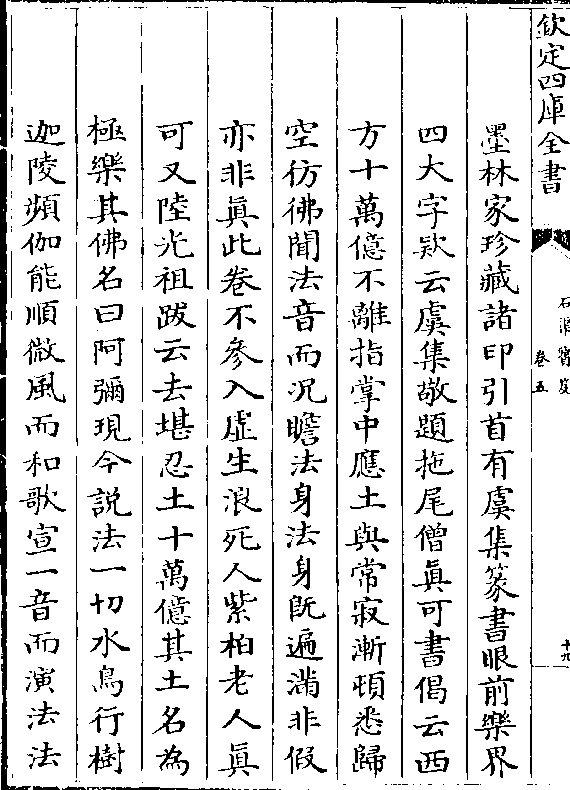 欽定四庫全書
石渠寶笈
卷五
十九
墨林家珍藏諸印引首有虞集篆書眼前樂界
四大字欵云虞集敬題拖尾僧眞可書偈云西
方十萬億不離指掌中應土與常寂漸頓悉歸
空彷彿聞法音而况瞻法身法身旣遍滿非假
亦非眞此卷不參入虛生浪死人紫柏老人眞
可又陸光祖跋云去堪忍土十萬億其土名為
極樂其佛名曰阿彌現今説法一切水鳥行樹
迦陵頻伽能順微風而和歌宣一音而演法法